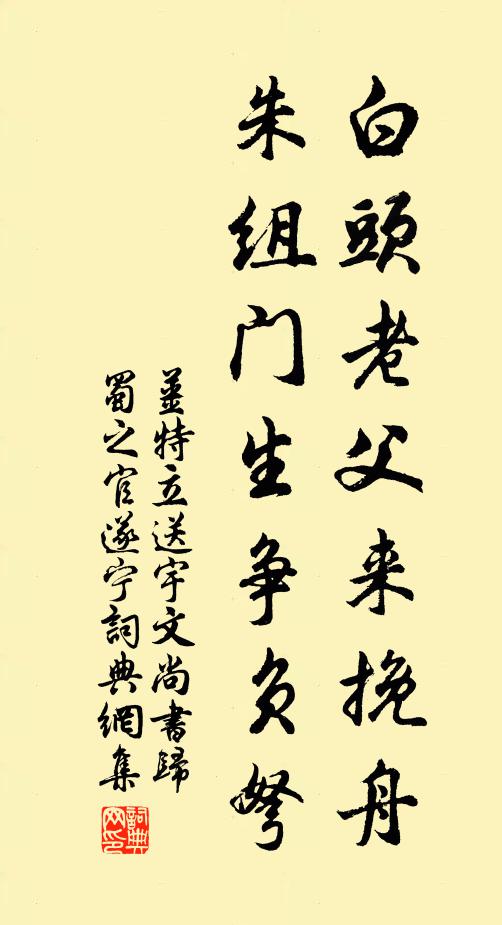 白頭老父来挽舟
朱组门生争负弩
姜特立送宇文尚書歸
蜀之官遂宁詞典網集
詞典网印